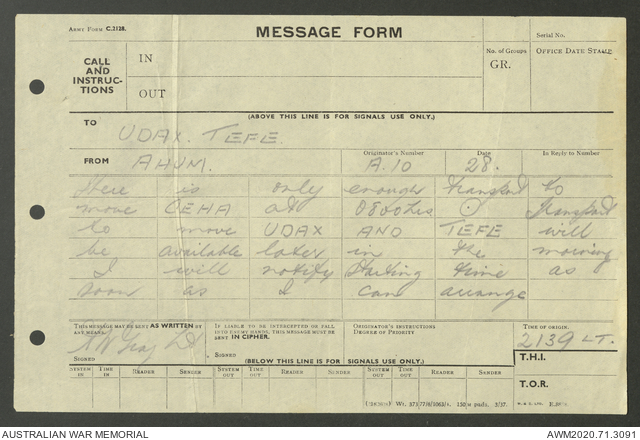 ARMY FORM C.2128.
MESSAGE FORM
Serial No.
CALL AND INSTRUCTIONS
IN
OUT
No. of Groups
GR.
OFFICE DATE STAMP
(ABOVE THIS LINE IS FOR SIGNALS USE ONLY.)
TO UDAX. TEFE.
FROM AHUM. Originator's Number A.10 Date 28. In Reply to Number
There is only enough transport to
move OEHA at 0800hrs ⊙ Transport
to move UDAX AND TEFE will
be available later in the morning
I will notify starting time as
soon as I can arrange
THIS MESSAGE MAY BE SENT AS WRITTEN BY ANY MEANS.
SIGNED
IF LIABLE TO BE INTERCEPTED OR FALL INTO ENEMY HANDS, THIS MESSAGE MUST BE SENT IN CIPHER.
SIGNED
ORIGINATOR'S INSTRUCTIONS
DEGREE OF PRIORITY
TIME OF ORIGIN.
2139 LT.
(BELOW THIS LINE IS FOR SIGNALS USE ONLY.)
T.H.I.
T.O.R.
SYSTEM IN TIME IN READER SENDER SYSTEM OUT TIME OUT READER SENDER SYSTEM OUT TIME OUT READER SENDER
150m pads. 3/37.
AUSTRALIAN WAR MEMORIAL
AWM2020.71.3091